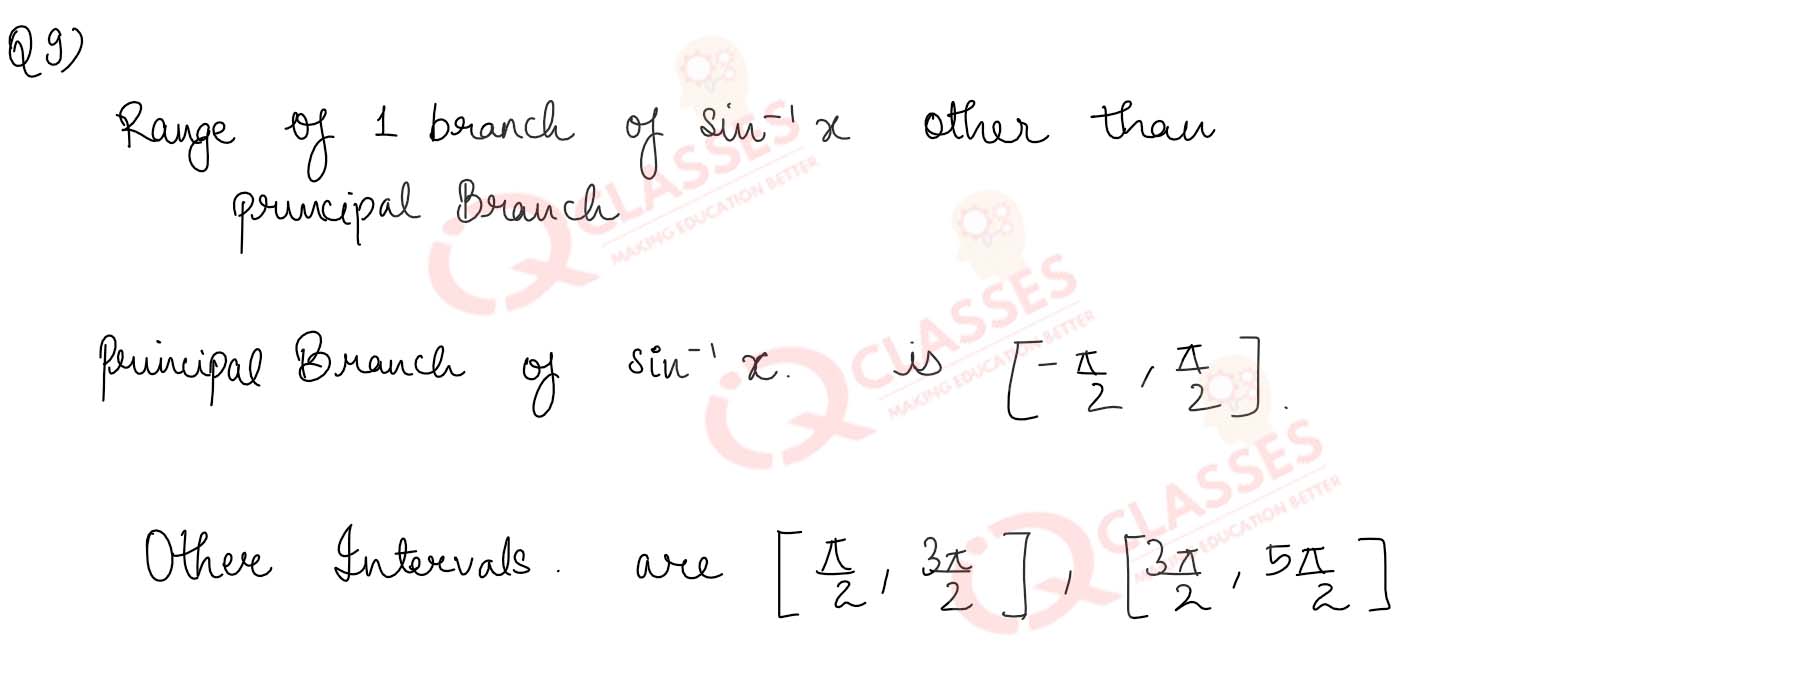 Q9)
Range of 1 branch of sin⁻¹ x other than
principal Branch
Principal Branch of sin⁻¹ x. is [-π/2, π/2].
Other Intervals. are [π/2, 3π/2], [3π/2, 5π/2]
iQ CLASSES
MAKING EDUCATION BETTER
iQ CLASSES
MAKING EDUCATION BETTER
iQ CLASSES
MAKING EDUCATION BETTER